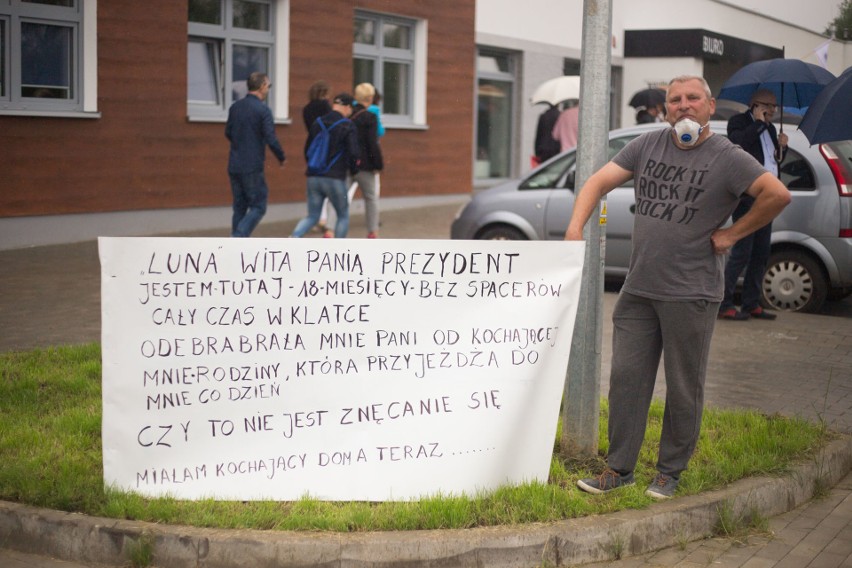 BIURO
ROCK IT
ROCK IT
ROCK IT
„LUNA” WITA PANIĄ PREZYDENT
JESTEM-TUTAJ-18-MIESIĘCY-BEZ SPACERÓW
CAŁY CZAS W KLATCE
ODEBRABRAŁA MNIE PANI OD KOCHAJĄCEJ
MNIE-RODZINY, KTÓRA PRZYJEŻDŻA DO
MNIE CO DZIEŃ
CZY TO NIE JEST ZNĘCANIE SIĘ
MIAŁAM KOCHAJĄCY DOM A TERAZ.......